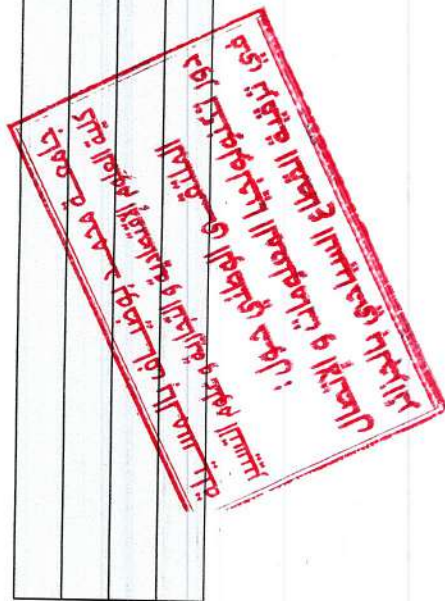 جامعة محمد بوضياف بالمسيلة
كلية العلوم الاقتصادية و التجارية وعلوم التسيير
الملتقى الوطني حول :
دور تكنولوجيا المعلومات و الإتصال
في ترقية القطاع السياحي بالجزائر